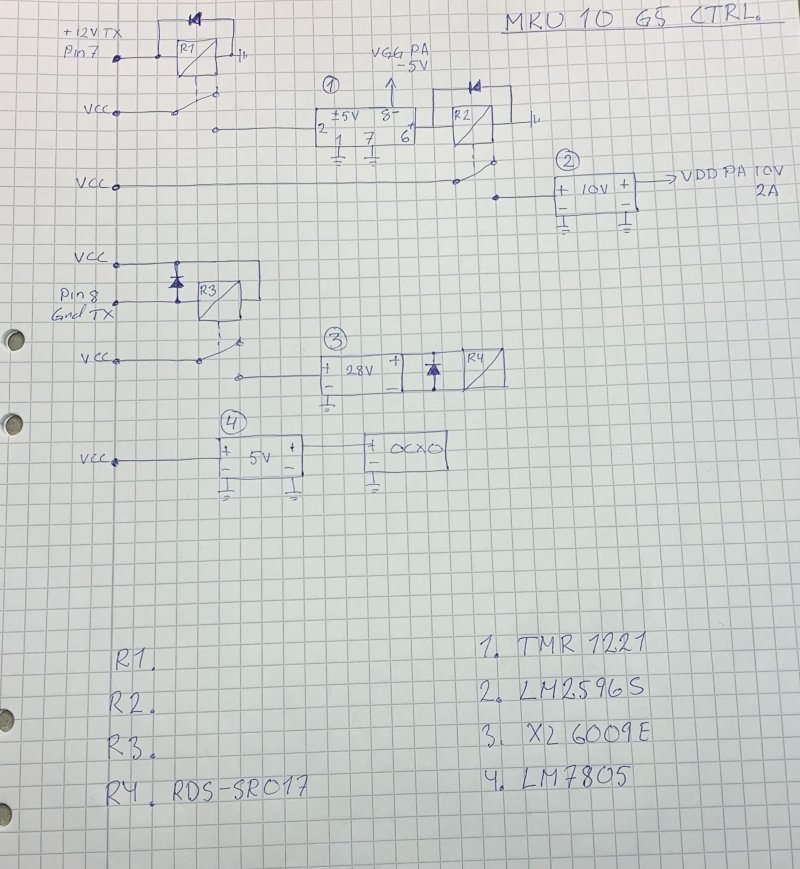 MKU 10 G5 CTRL.
+12V TX
Pin7
R1
VCC
VGG PA
-5V
1
±5V 8-
2 1 7 6+
R2
VCC
2
+ 10V +
- -
VDD PA 10V
2A
VCC
Pin8
Gnd TX
R3
VCC
3
+ 28V +
- -
R4
4
VCC
+ 5V +
- -
+ OCXO
-
R1.
R2.
R3.
R4. RDS-SR017
1. TMR 1221
2. LM2596S
3. X2 6009E
4. LM7805